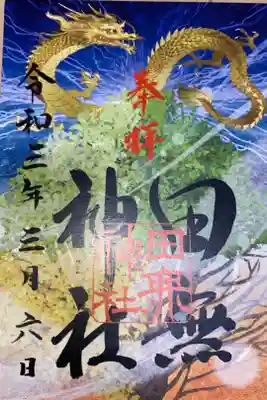 奉拝
田無
神社
田無神社
令和三年三月六日